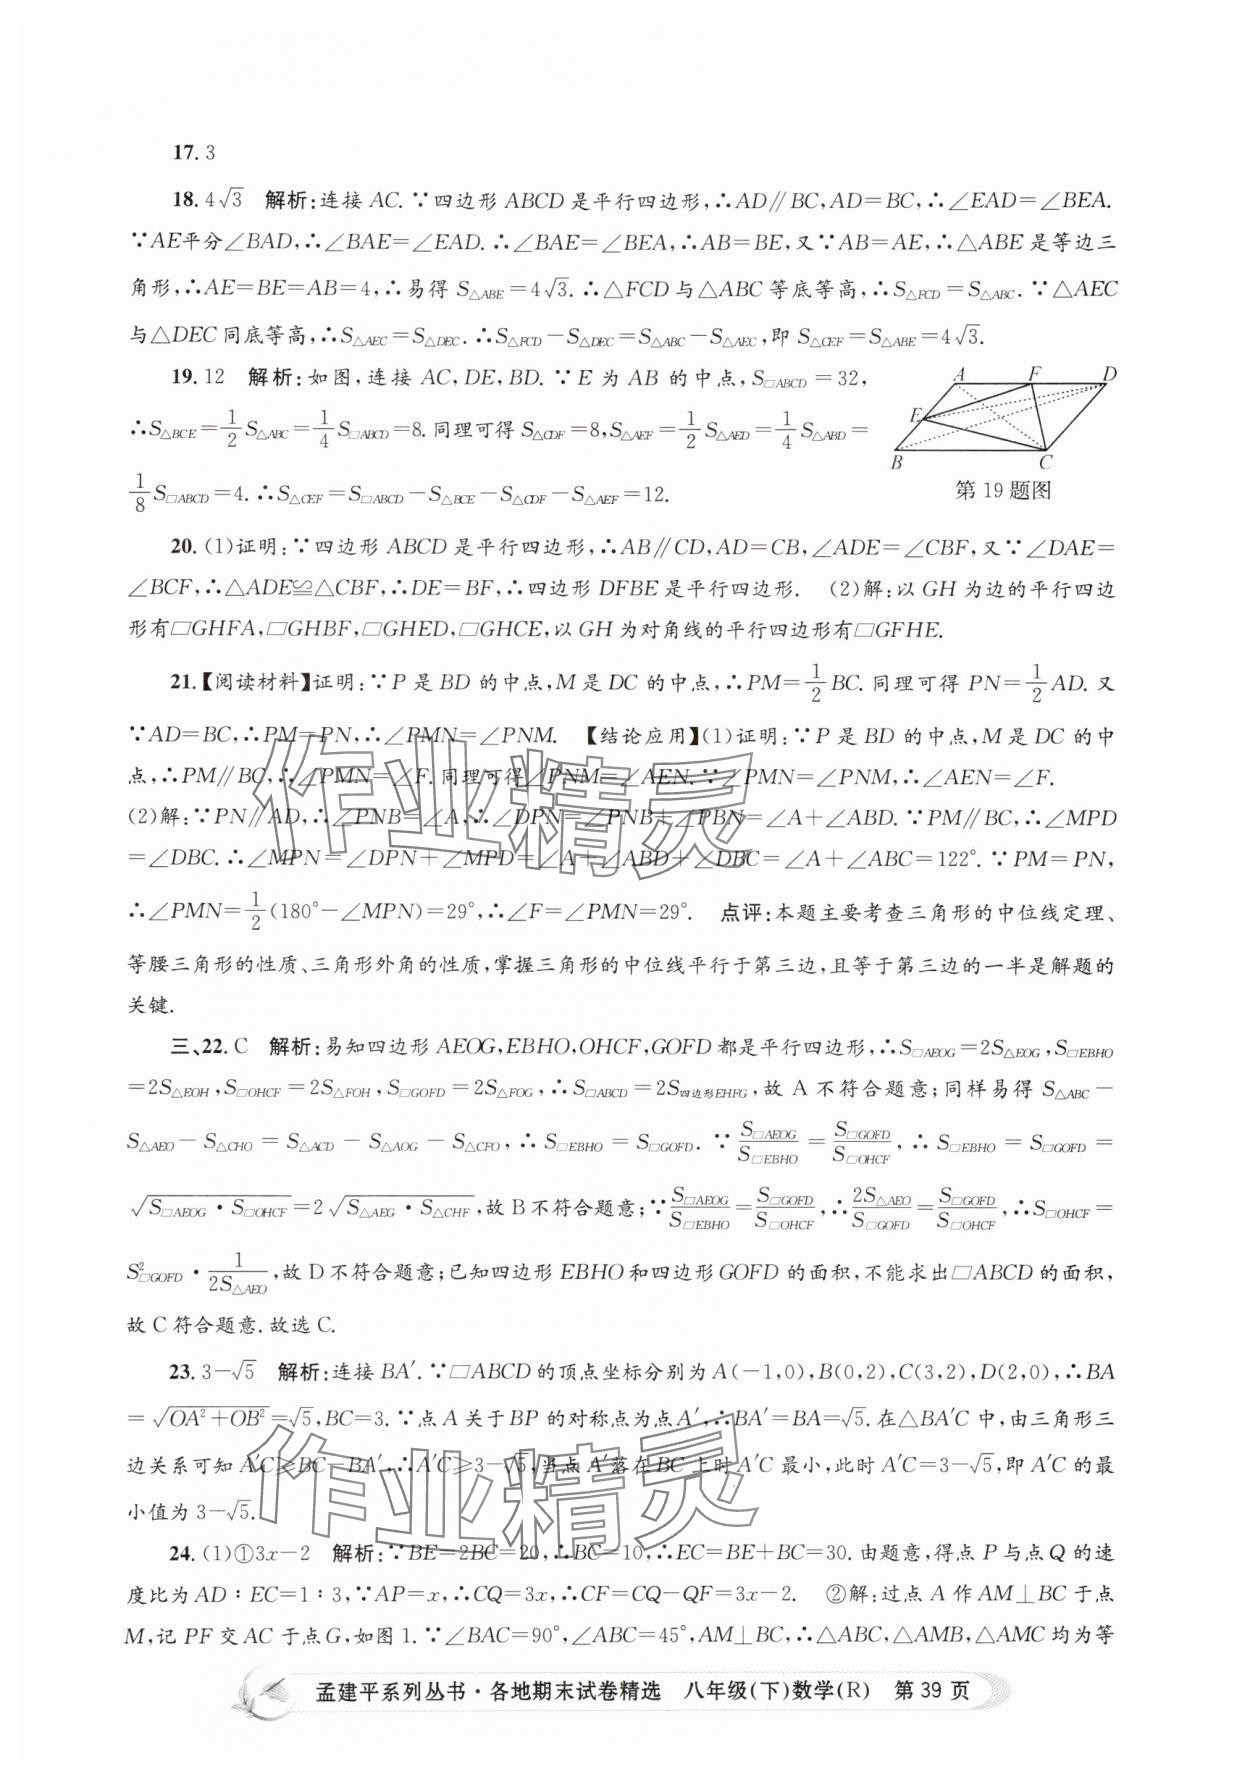 17. 3
18. 4√3　解析:连接 AC. ∵四边形 ABCD 是平行四边形,∴AD∥BC,AD=BC,∴∠EAD=∠BEA.
∵AE平分∠BAD,∴∠BAE=∠EAD. ∴∠BAE=∠BEA,∴AB=BE,又∵AB=AE,∴△ABE 是等边三
角形,∴AE=BE=AB=4,∴易得 S△ABE=4√3. ∴△FCD 与△ABC 等底等高,∴S△FCD=S△ABC. ∵△AEC
与△DEC 同底等高,∴S△AEC=S△DEC. ∴S△FCD-S△DEC=S△ABC-S△AEC,即 S△CEF=S△ABE=4√3.
19. 12　解析:如图,连接 AC,DE,BD. ∵E 为 AB 的中点,S□ABCD=32,
∴S△BCE=1/2 S△ABC=1/4 S□ABCD=8. 同理可得 S△CDF=8,S△AEF=1/2 S△AED=1/4 S△ABD=
1/8 S□ABCD=4. ∴S△CEF=S□ABCD-S△BCE-S△CDF-S△AEF=12.
A F D
E
B C
第 19 题图
20. (1)证明:∵四边形 ABCD 是平行四边形,∴AB∥CD,AD=CB,∠ADE=∠CBF,又∵∠DAE=
∠BCF,∴△ADE≌△CBF,∴DE=BF,∴四边形 DFBE 是平行四边形.　(2)解:以 GH 为边的平行四边
形有□GHFA,□GHBF,□GHED,□GHCE,以 GH 为对角线的平行四边形有□GFHE.
21.【阅读材料】证明:∵P 是 BD 的中点,M 是 DC 的中点,∴PM=1/2 BC. 同理可得 PN=1/2 AD. 又
∵AD=BC,∴PM=PN,∴∠PMN=∠PNM.　【结论应用】(1)证明:∵P 是 BD 的中点,M 是 DC 的中
点,∴PM∥BC,∴∠PMN=∠F. 同理可得∠PNM=∠AEN. ∵∠PMN=∠PNM,∴∠AEN=∠F.
(2)解:∵PN∥AD,∴∠PNB=∠A,∴∠DPN=∠PNB+∠PBN=∠A+∠ABD. ∵PM∥BC,∴∠MPD
=∠DBC. ∴∠MPN=∠DPN+∠MPD=∠A+∠ABD+∠DBC=∠A+∠ABC=122°. ∵PM=PN,
∴∠PMN=1/2(180°-∠MPN)=29°,∴∠F=∠PMN=29°.　点评:本题主要考查三角形的中位线定理、
等腰三角形的性质、三角形外角的性质,掌握三角形的中位线平行于第三边,且等于第三边的一半是解题的
关键.
三、22. C　解析:易知四边形 AEOG,EBHO,OHCF,GOFD 都是平行四边形,∴S□AEOG=2S△EOG,S□EBHO
=2S△EOH,S□OHCF=2S△FOH,S□GOFD=2S△FOG,∴S□ABCD=2S四边形EHFG,故 A 不符合题意;同样易得 S△ABC-
S△AEO-S△CHO=S△ACD-S△AOG-S△CFO,∴S□EBHO=S□GOFD. ∵S□AEOG/S□EBHO=S□GOFD/S□OHCF,∴S□EBHO=S□GOFD=
√(S□AEOG·S□OHCF)=2√(S△AEG·S△CHF),故 B 不符合题意;∵S□AEOG/S□EBHO=S□GOFD/S□OHCF,∴2S△AEO/S□GOFD=S□GOFD/S□OHCF,∴S□OHCF=
S²□GOFD·1/(2S△AEO),故 D 不符合题意;已知四边形 EBHO 和四边形 GOFD 的面积,不能求出□ABCD 的面积,
故 C 符合题意.故选 C.
23. 3-√5　解析:连接 BA′. ∵□ABCD 的顶点坐标分别为 A(-1,0),B(0,2),C(3,2),D(2,0),∴BA
=√(OA²+OB²)=√5,BC=3. ∵点 A 关于 BP 的对称点为点 A′,∴BA′=BA=√5. 在△BA′C 中,由三角形三
边关系可知 A′C≥BC-BA′,∴A′C≥3-√5,当点 A′落在 BC 上时 A′C 最小,此时 A′C=3-√5,即 A′C 的最
小值为 3-√5.
24. (1)①3x-2　解析:∵BE=2BC=20,∴BC=10,∴EC=BE+BC=30. 由题意,得点 P 与点 Q 的速
度比为 AD∶EC=1∶3,∵AP=x,∴CQ=3x,∴CF=CQ-QF=3x-2.　②解:过点 A 作 AM⊥BC 于点
M,记 PF 交 AC 于点 G,如图 1. ∵∠BAC=90°,∠ABC=45°,AM⊥BC,∴△ABC,△AMB,△AMC 均为等
孟建平系列丛书·各地期末试卷精选　八年级(下)数学(R)　第 39 页
作业精灵
作业精灵